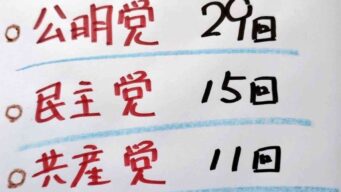 公明党 29回
民主党 15回
共産党 11回